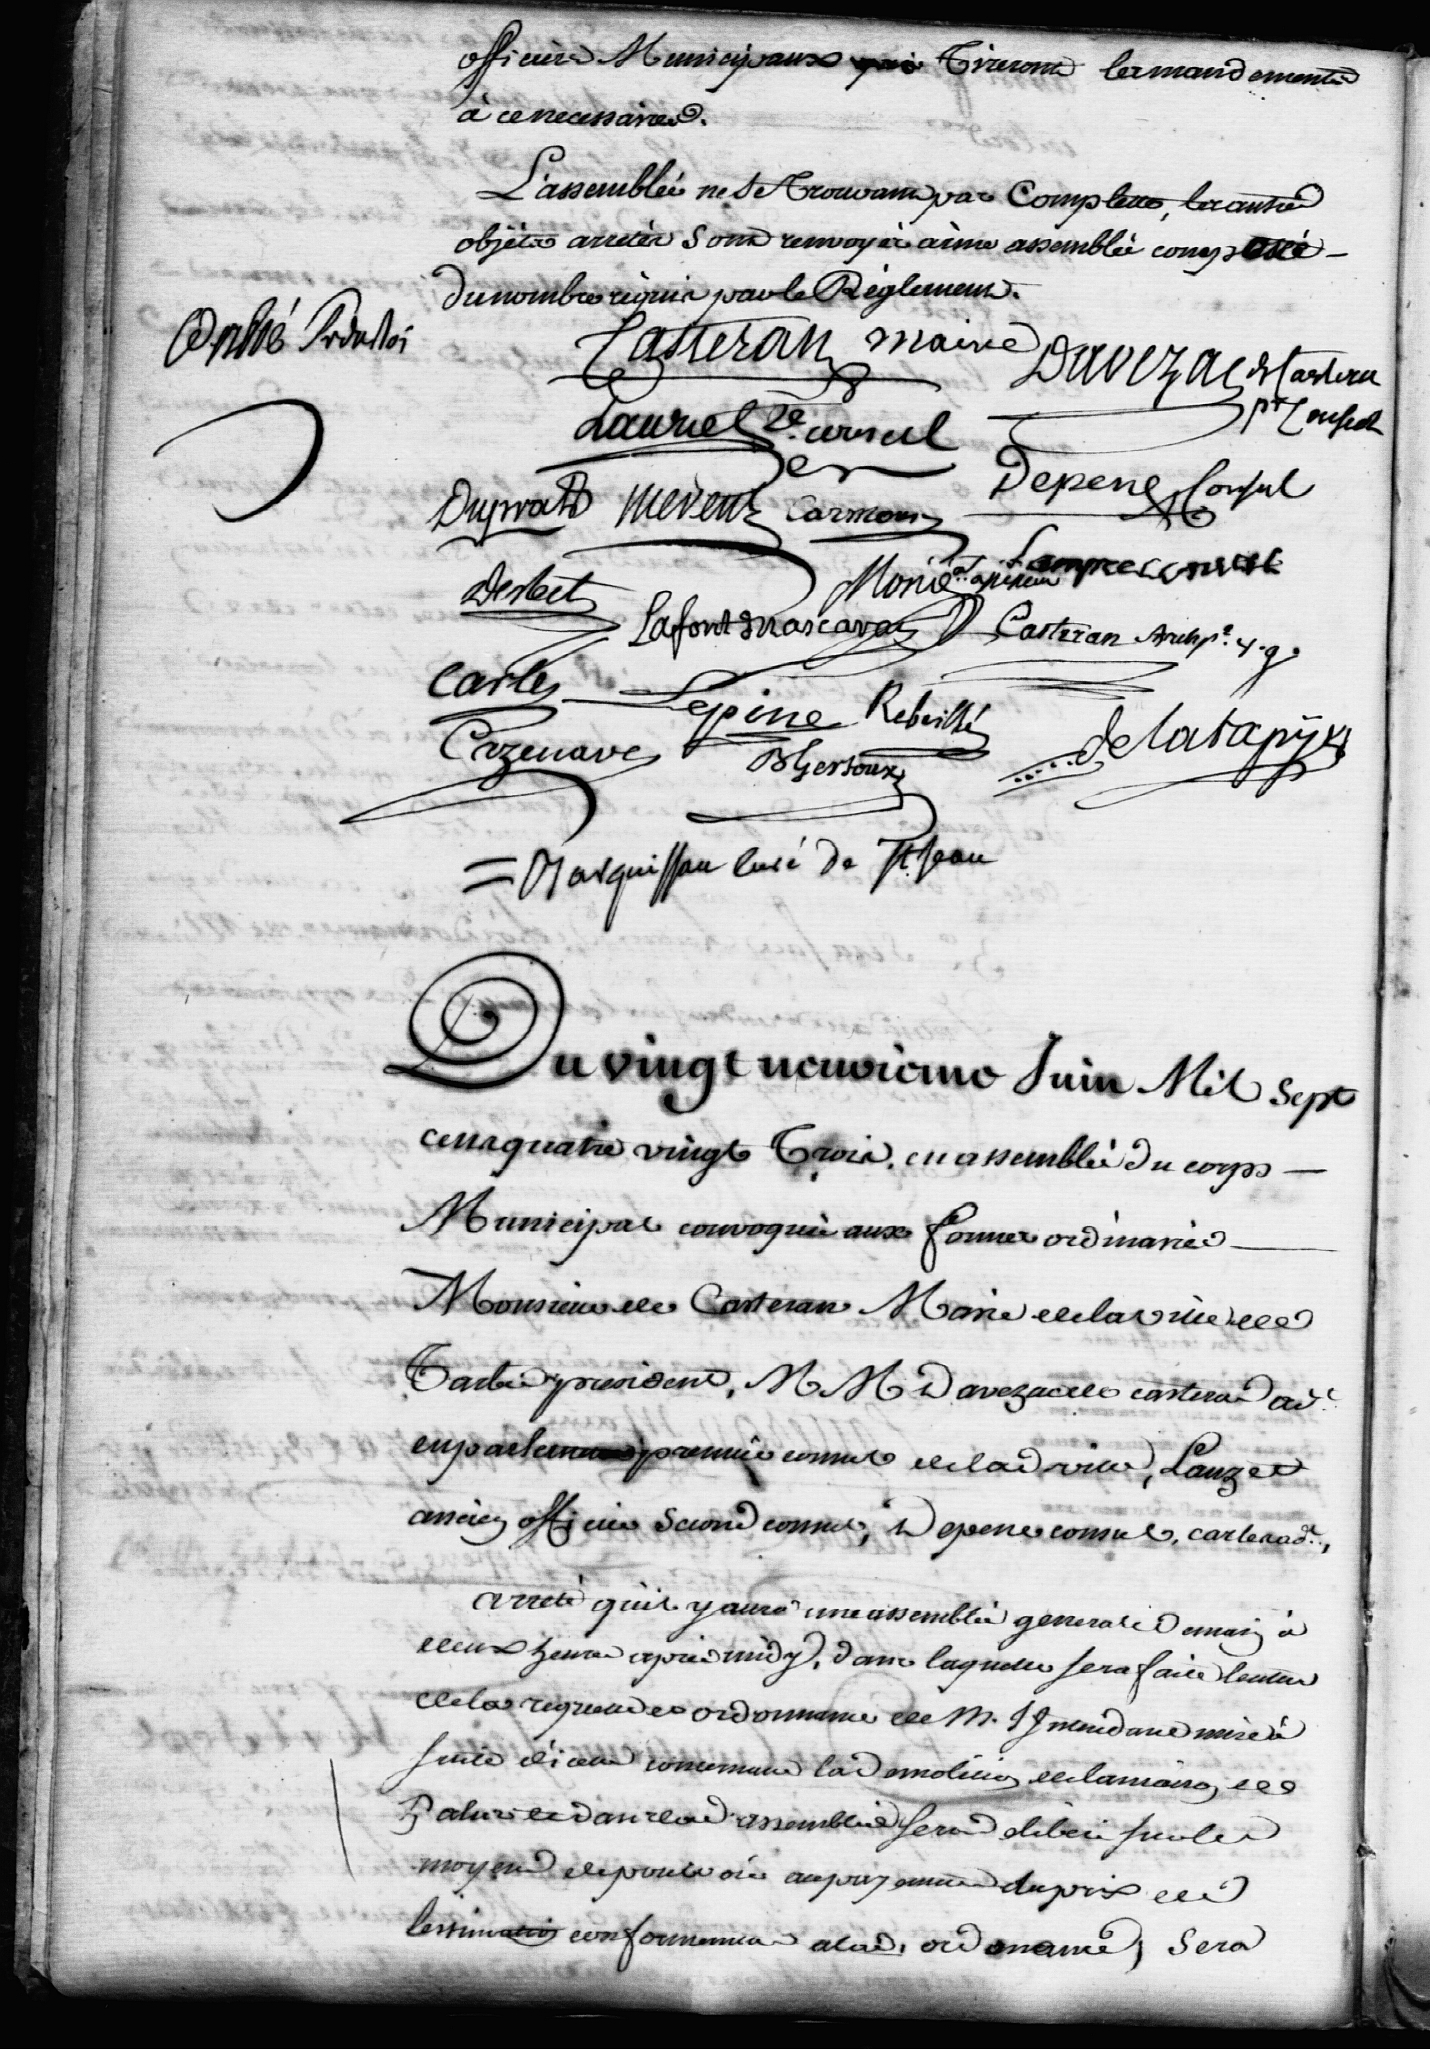 officiers Municipaux qui Tireront les mandements
à ce necessaires.
L'assemblée ne se Trouvant pas Complette, les autres
objets arretés sont renvoyés à une assemblée composée
du nombre requis par le Réglement.
Casteran maire
Davezac de Casterau
pr Consul
Lauzet 2e. consul
Depene Consul
Duprat
Carmouz
Desbet
Lafont Mascaras
Casteran Archip.e v. g.
Carles
Lepine
Rebeillé
Cazenave
de latapÿ
Marquissau Curé de St. Jean
Du vingt neuvieme Juin Mil Sept
cens quatre vingt Trois, en assemblée du corps
Municipal convoquée aux formes ordinaires
Monsieur de Casteran Maire de la ville de
Tarbes president, MM Davezac de casterau ad.t
en parlement premier consul de lad ville, Lauzet
ancien officier second consul, Depene consul, carles ad.t,
arreté qu'il y aura une assemblée generale demain à
deux heures après midy, dans laquelle sera faite lecture
de la requette et ordonnance de M. L'Intendant mise à
suite d'icelle concernant la demolition de la maison de
et dans lad assemblée sera deliberé sur les
moyens de pourvoir au payement du prix de
l'estimation conformement à lad. ordonance, Sera